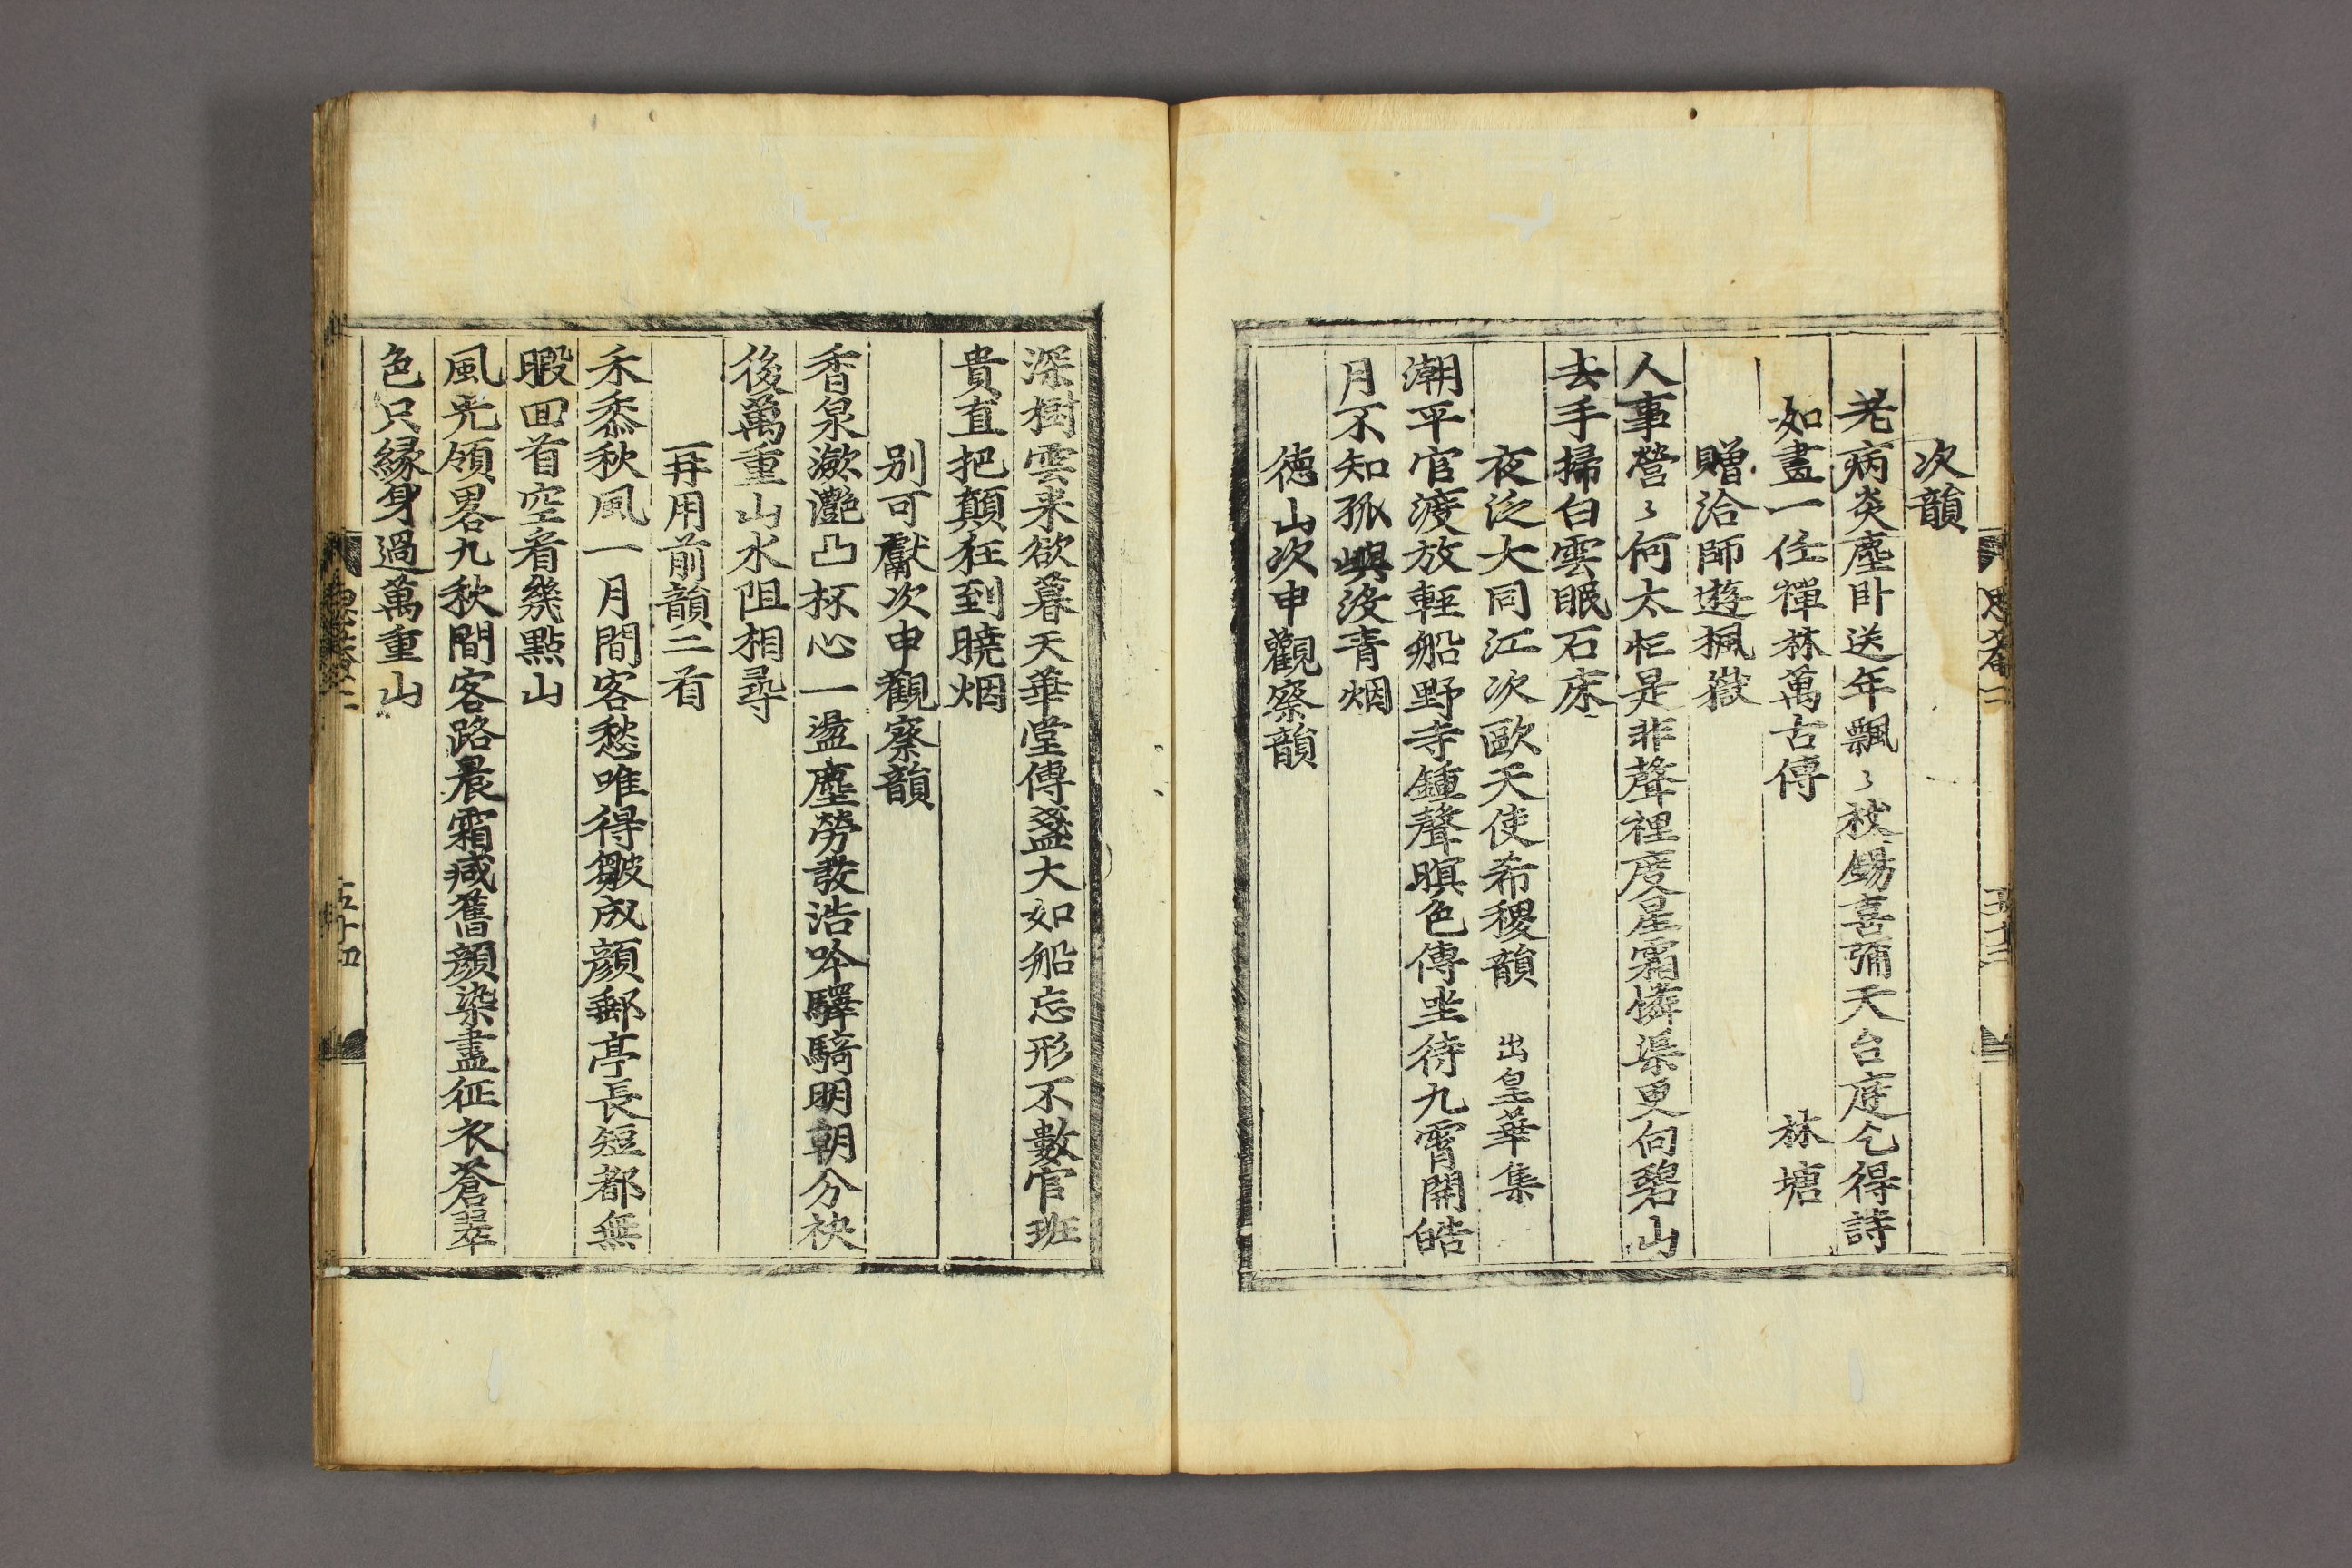 次韻
老病炎塵卧送年飄〻祓錫喜彌天台庭乞得詩
如畫一任禪林萬古傳　林塘
贈洽師遊楓嶽
人事營〻何太忙是非聲裡度星霜憐渠更向碧山
去手掃白雲眠石床
夜泛大同江次歐天使希稷韻　出皇華集
潮平官渡放輕船野寺鍾聲暝色傳坐待九霄開皓
月不知孤嶼沒青烟
德山次申觀察韻
深樹雲来欲暮天華堂傳盞大如船忘形不數官班
貴直把顛狂到曉烟
别可獻次申觀察韻
香泉瀲灔凸杯心一盪塵勞發浩吟驛騎明朝分袂
後萬重山水阻相尋
再用前韻二首
禾黍秋風一月間客愁唯得皺成顔郵亭長短都無
暇回首空看幾點山
風光領畧九秋間客路晨霜減舊顔染盡征衣蒼翠
色只緣身過萬重山
五十四